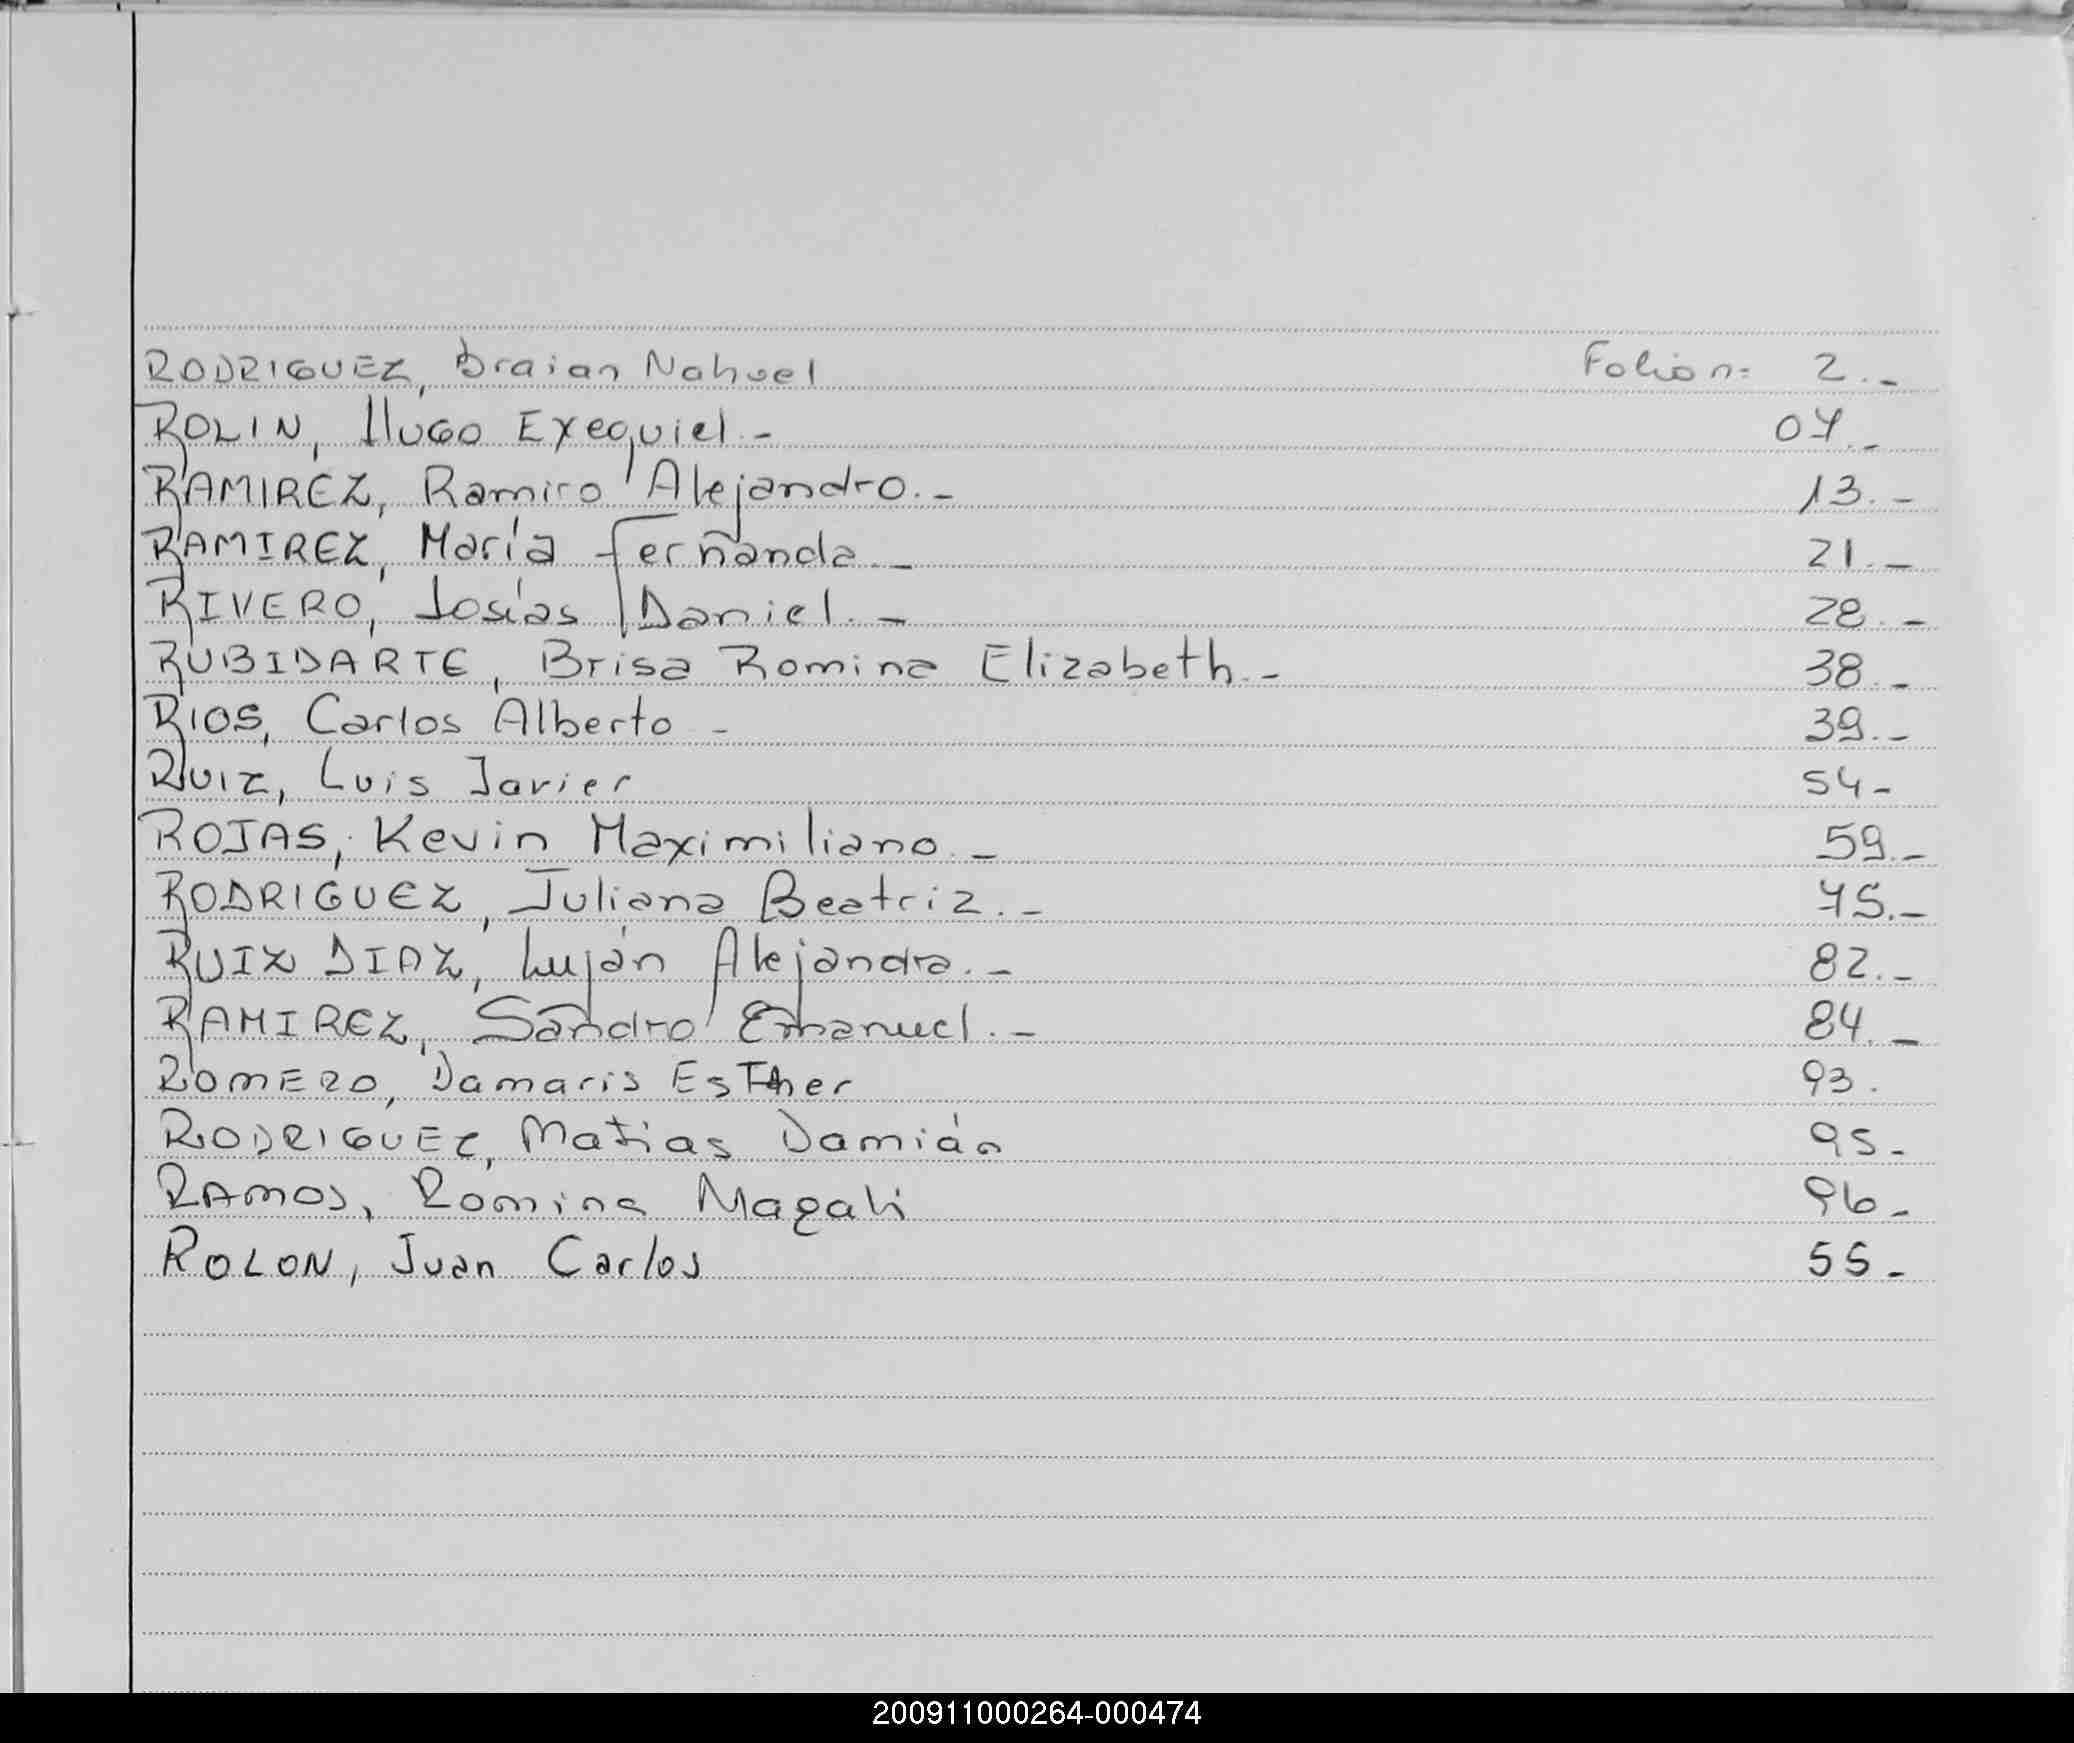 RODRIGUEZ, Braian Nahuel Folio n= 2.-
ROLIN, Hugo Exequiel.- 07.-
RAMIREZ, Ramiro Alejandro.- 13.-
RAMIREZ, María Fernanda.- 21.-
RIVERO, Josías Daniel.- 28.-
RUBIDARTE, Brisa Romina Elizabeth.- 38.-
RIOS, Carlos Alberto - 39.-
RUIZ, Luis Javier 54-
ROJAS, Kevin Maximiliano.- 59.-
RODRIGUEZ, Juliana Beatriz.- 75.-
RUIZ DIAZ, Luján Alejandra.- 82.-
RAMIREZ, Sandro Emanuel.- 84.-
ROMERO, Damaris Esther 93.
RODRIGUEZ, Matias Damián 95-
RAMOS, Romina Magali 96-
ROLON, Juan Carlos 55-
200911000264-000474